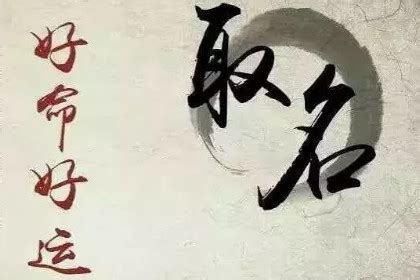 好命好运
取名